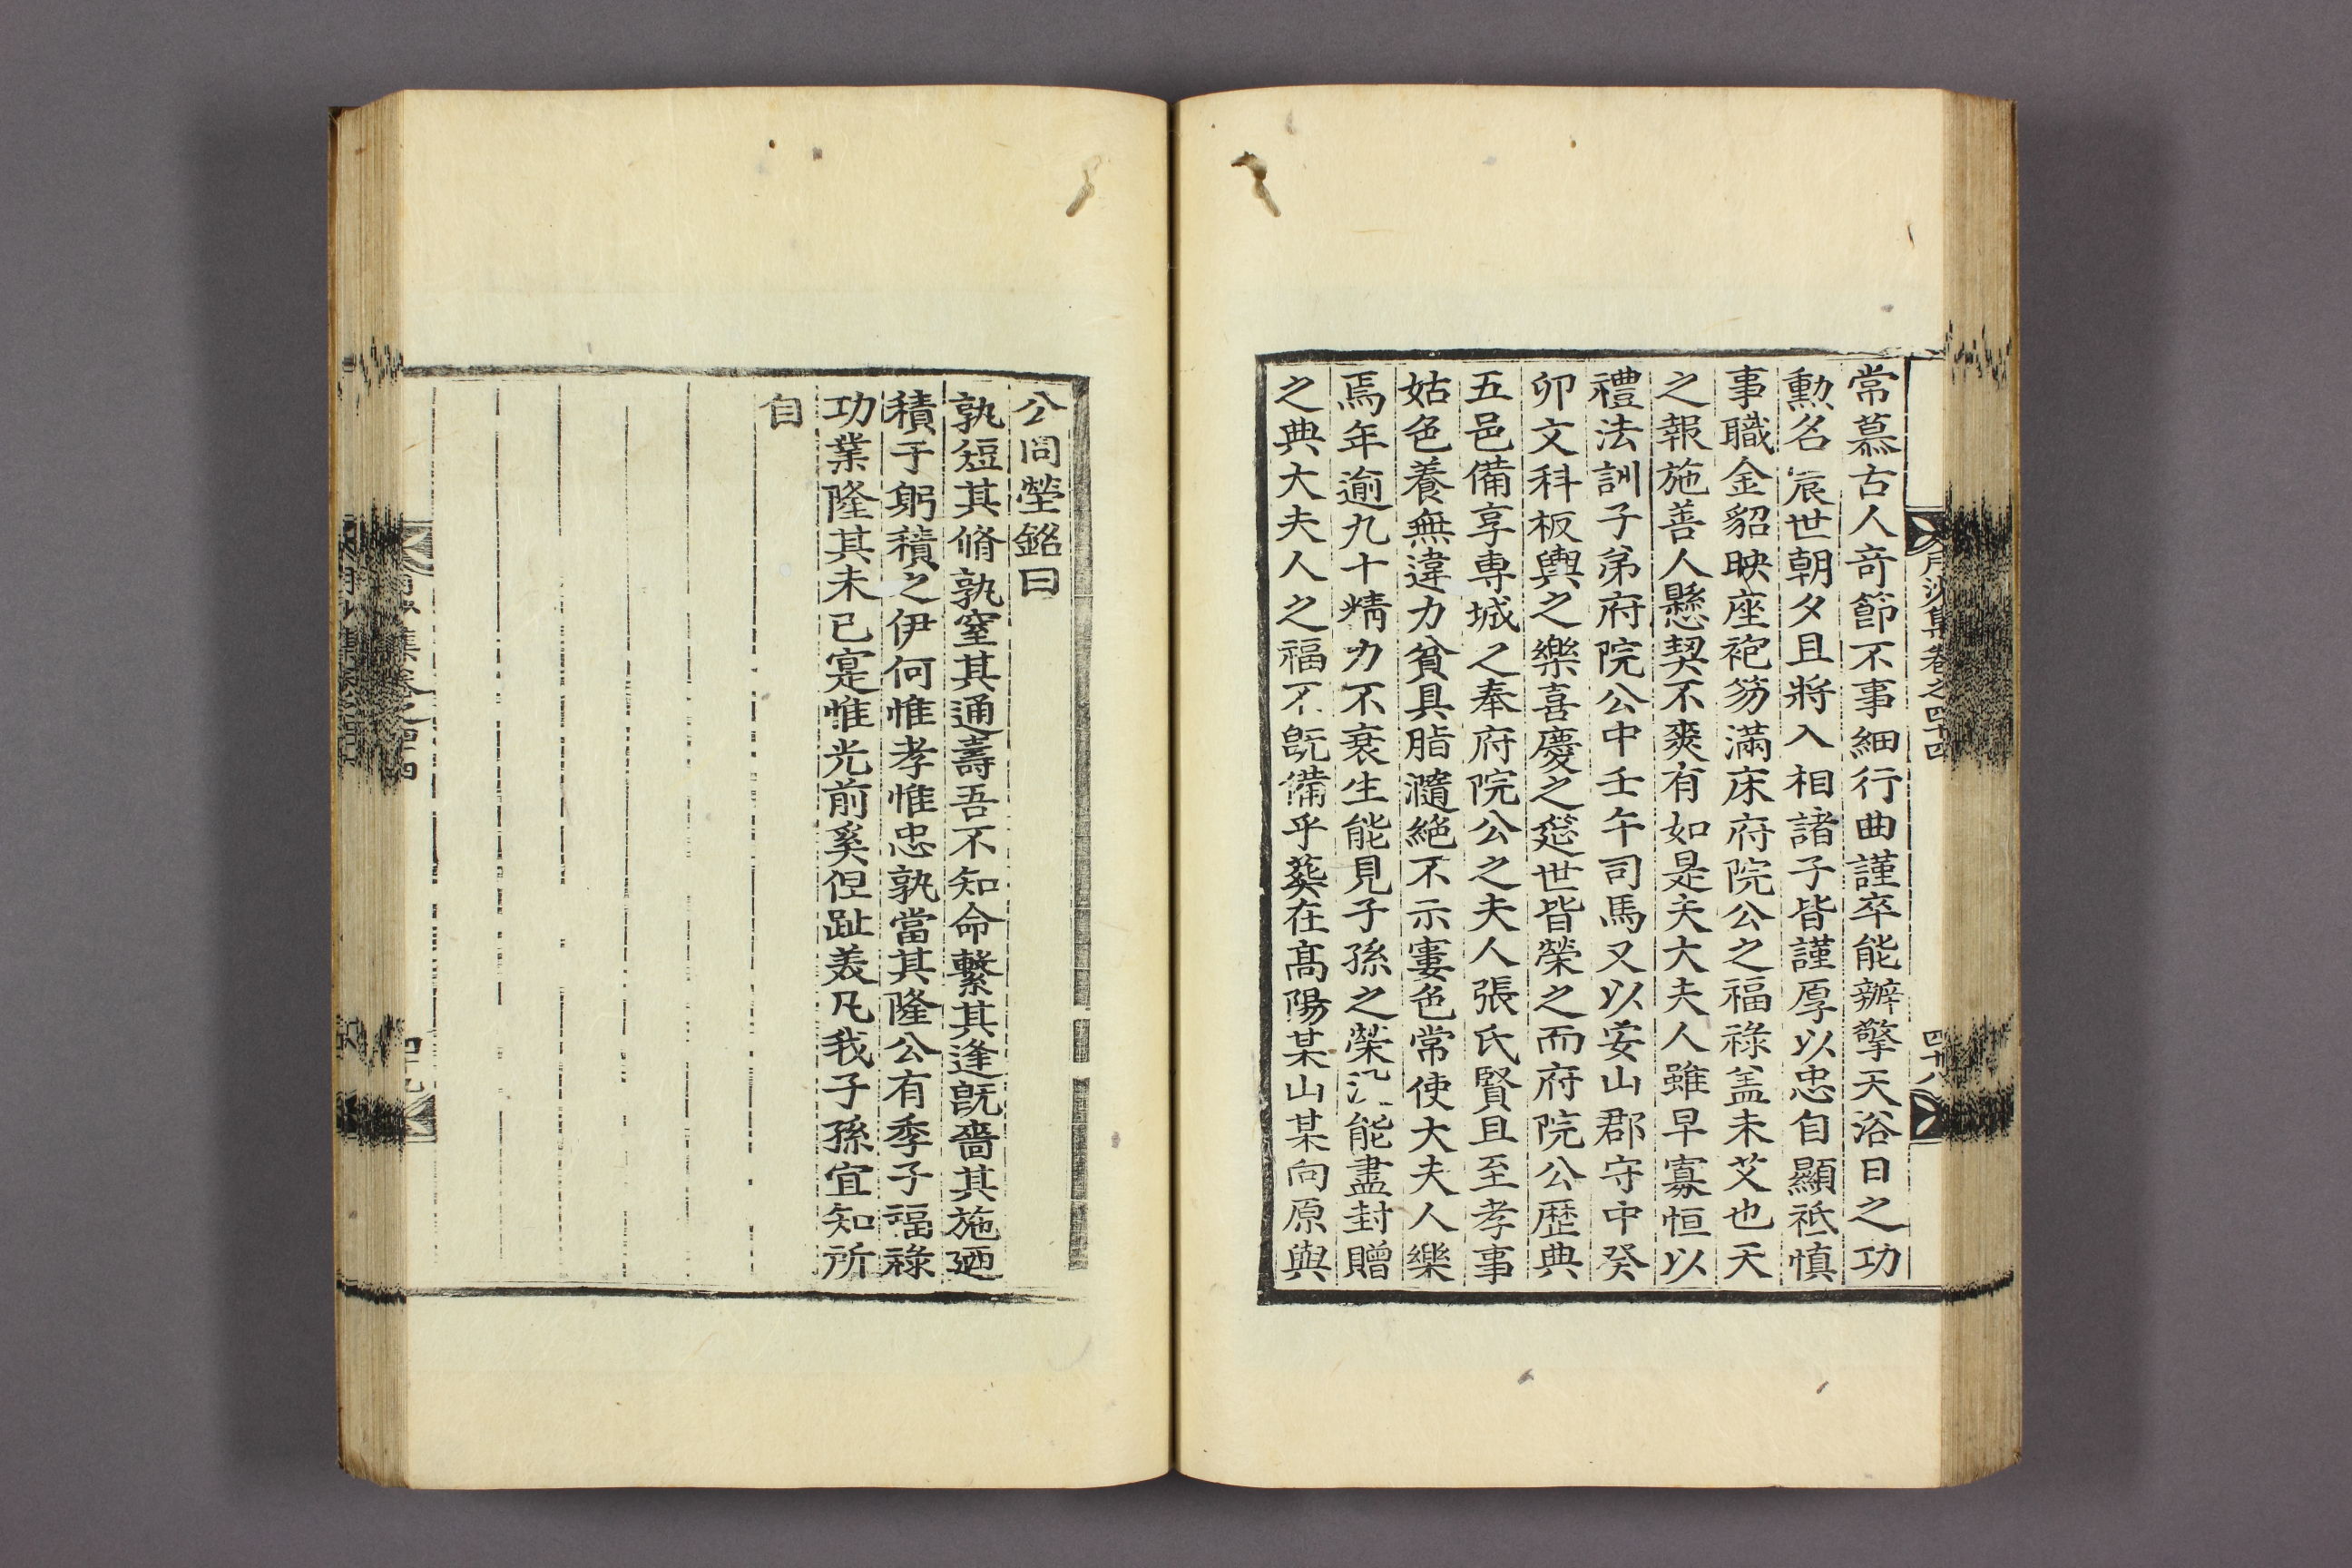 月沙集卷之四十四
四十八
常慕古人奇節不事細行曲謹卒能辦擎天浴日之功
勳名宸世朝夕且將入相諸子皆謹厚以忠自顯祗慎
事職金貂映座袍笏滿床府院公之福祿盖未艾也天
之報施善人懸契不爽有如是夫大夫人雖早寡恒以
禮法訓子弟府院公中壬午司馬又以安山郡守中癸
卯文科板輿之樂喜慶之筵世皆榮之而府院公歷典
五邑備享專城之奉府院公之夫人張氏賢且至孝事
姑色養無違力貧具脂瀡絕不示寠色常使大夫人樂
焉年逾九十精力不衰生能見子孫之榮沒能盡封贈
之典大夫人之福不旣備乎葬在高陽某山某向原與
公同塋銘曰
孰短其脩孰窒其通壽吾不知命繫其逢旣嗇其施廼
積于躬積之伊何惟孝惟忠孰當其隆公有季子福祿
功業隆其未已寔惟光前奚但趾美凡我子孫宜知所
自